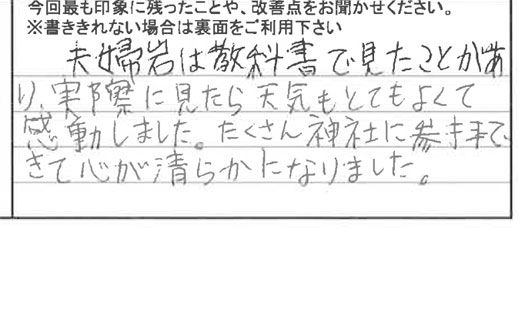 今回最も印象に残ったことや、改善点をお聞かせください。
※書ききれない場合は裏面をご利用下さい
夫婦岩は教科書で見たことがあ
り、実際に見たら天気もとてもよくて
感動しました。たくさん神社に参拝で
きて心が清らかになりました。